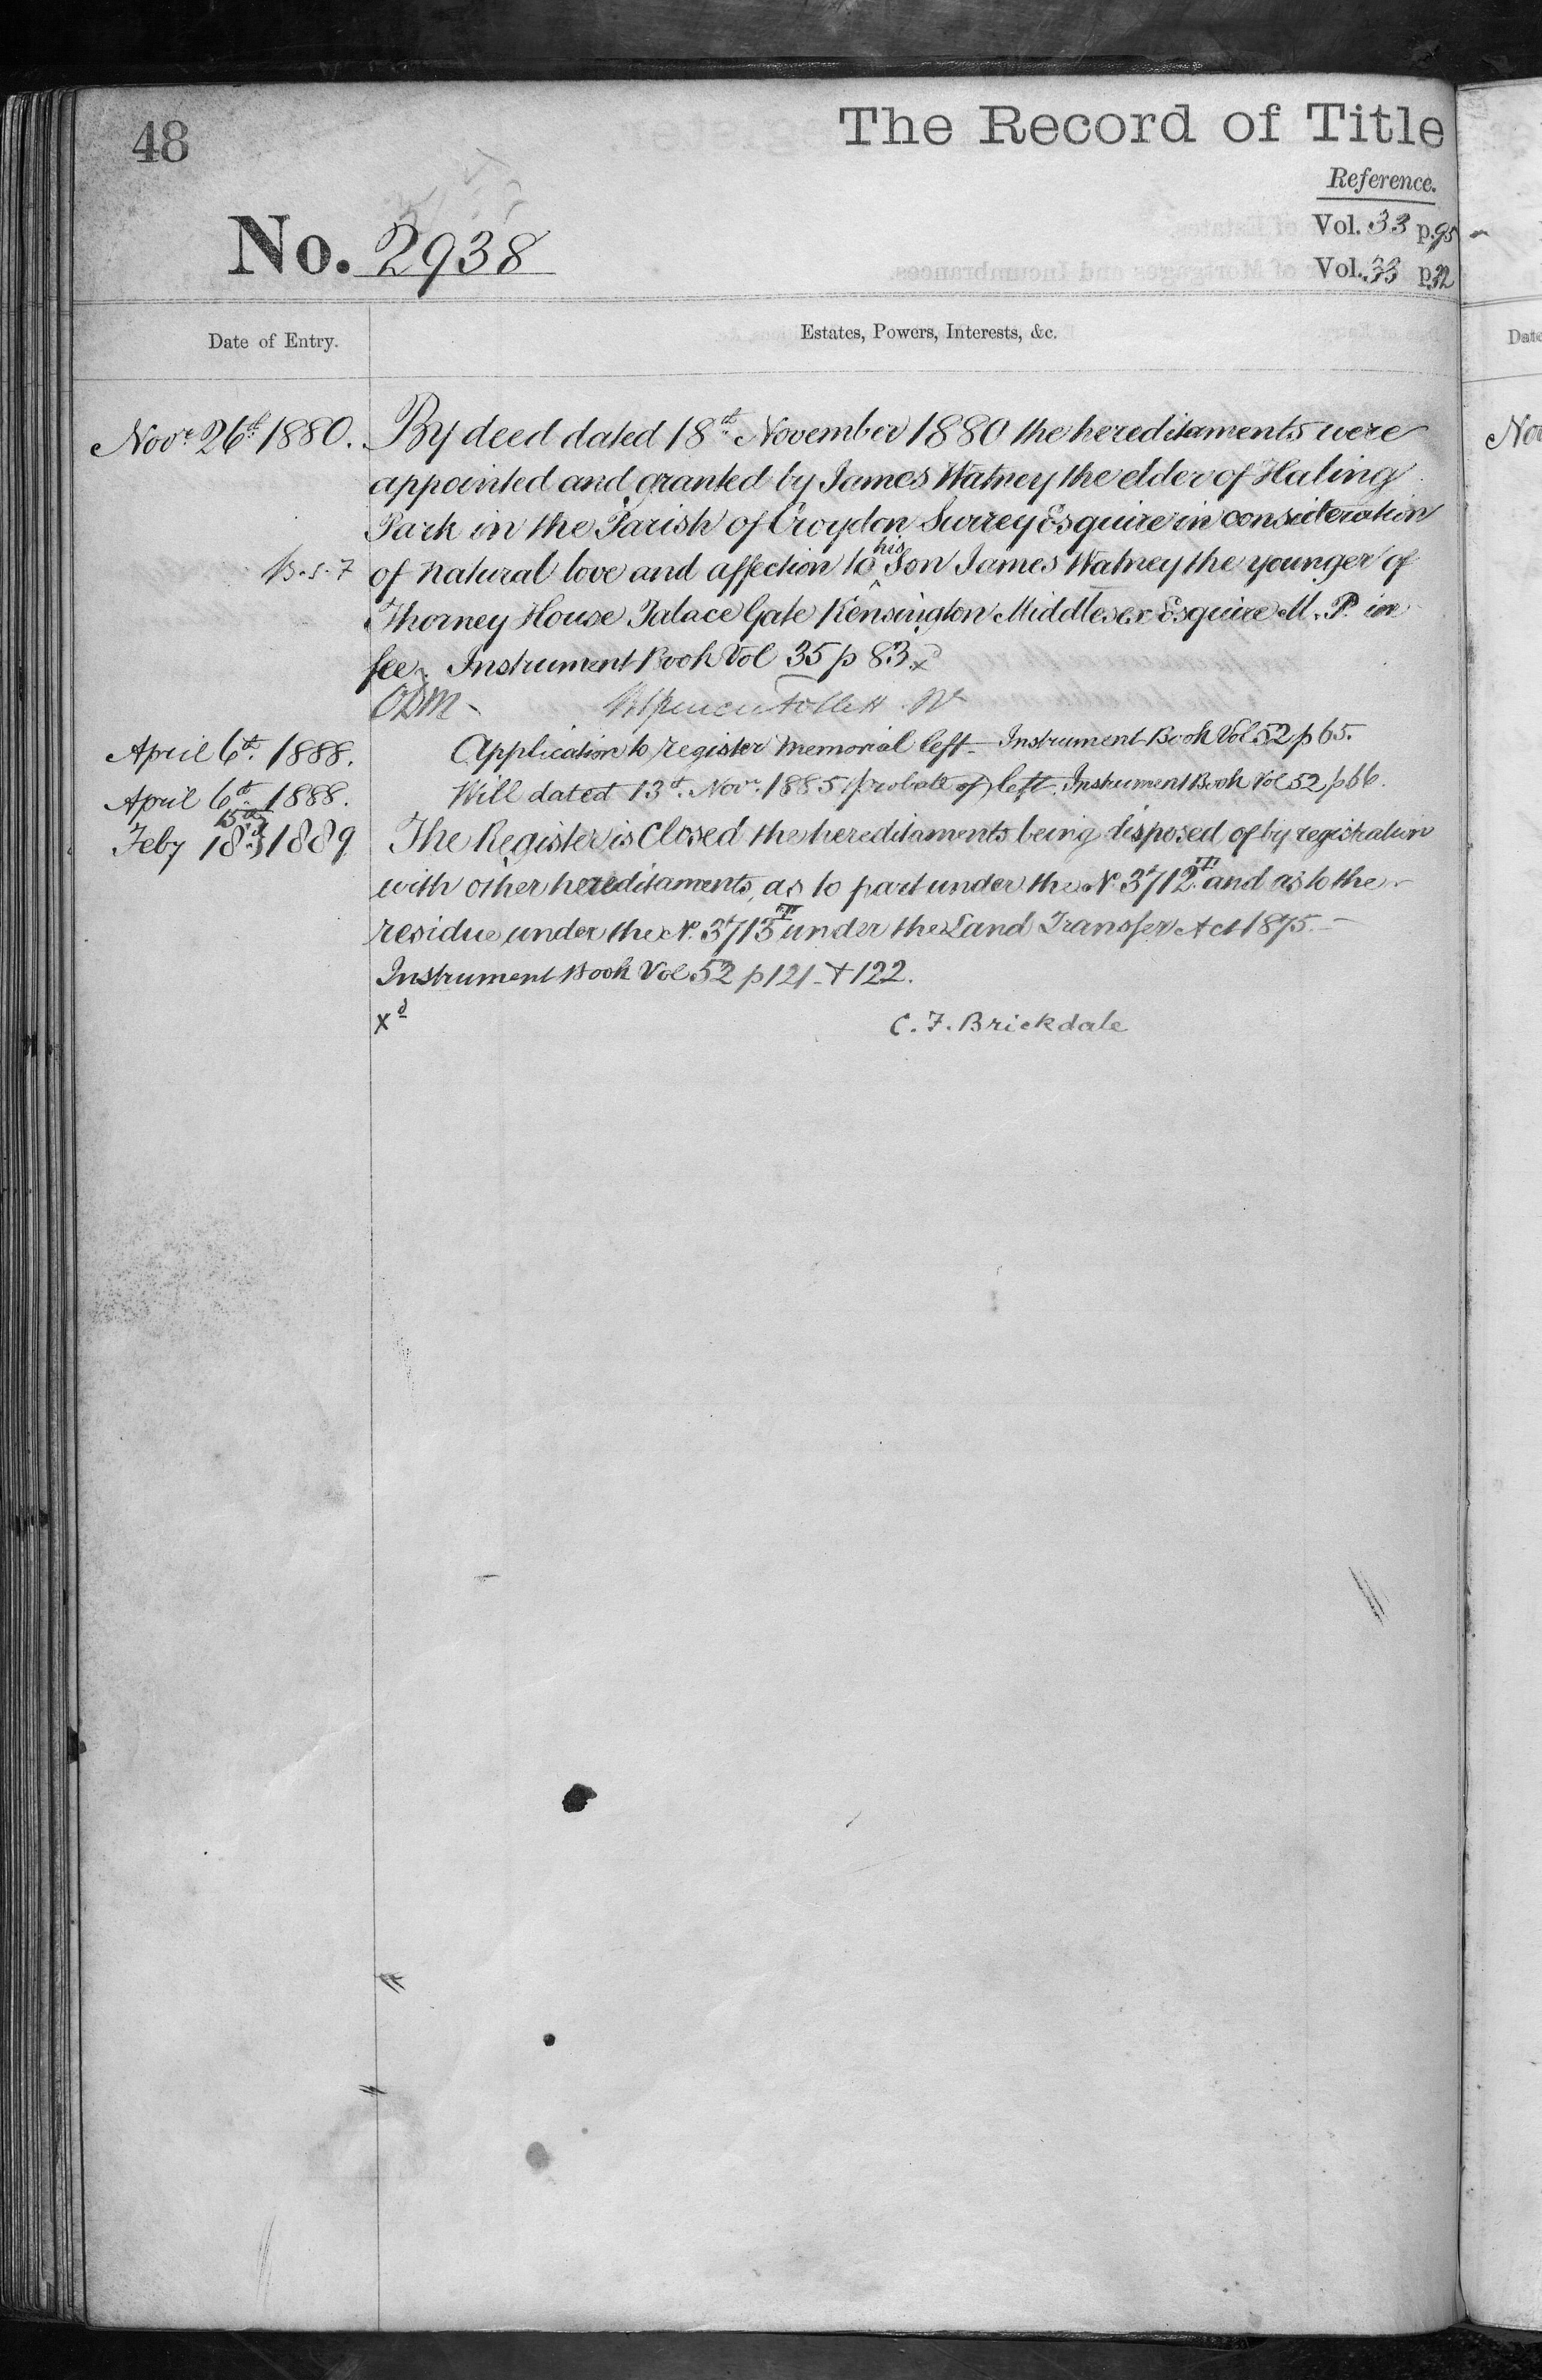 48
The Record of Title
Reference.
No. 2938
Vol. 33 p. 95
Vol. 33 p. 32
Date of Entry.
Estates, Powers, Interests, &c.
Novr 26th 1880.
By deed dated 18th November 1880 the hereditaments were
appointed and granted by James Watney the elder of Haling
Park in the Parish of Croydon Surrey Esquire in consideration
of natural love and affection to his Son James Watney the younger of
Thorney House Palace Gate Kensington Middlesex Esquire M.P. in
fee. Instrument Book Vol 35 p 83. xd
April 6th 1888.
Application to register memorial left. Instrument Book Vol 52 p 65.
April 6th 1888.
Will dated 13th Novr 1885 (probate of) left. Instrument Book Vol 52 p 66.
15th
Feby 18th 1889
The Register is Closed the hereditaments being disposed of by registration
with other hereditaments, as to part under the No. 3712 T and as to the
residue under the No. 3713 T under the Land Transfer Act 1875.
Instrument Book Vol 52 p 121 + 122.
xd
C. F. Brickdale
Date
Nov